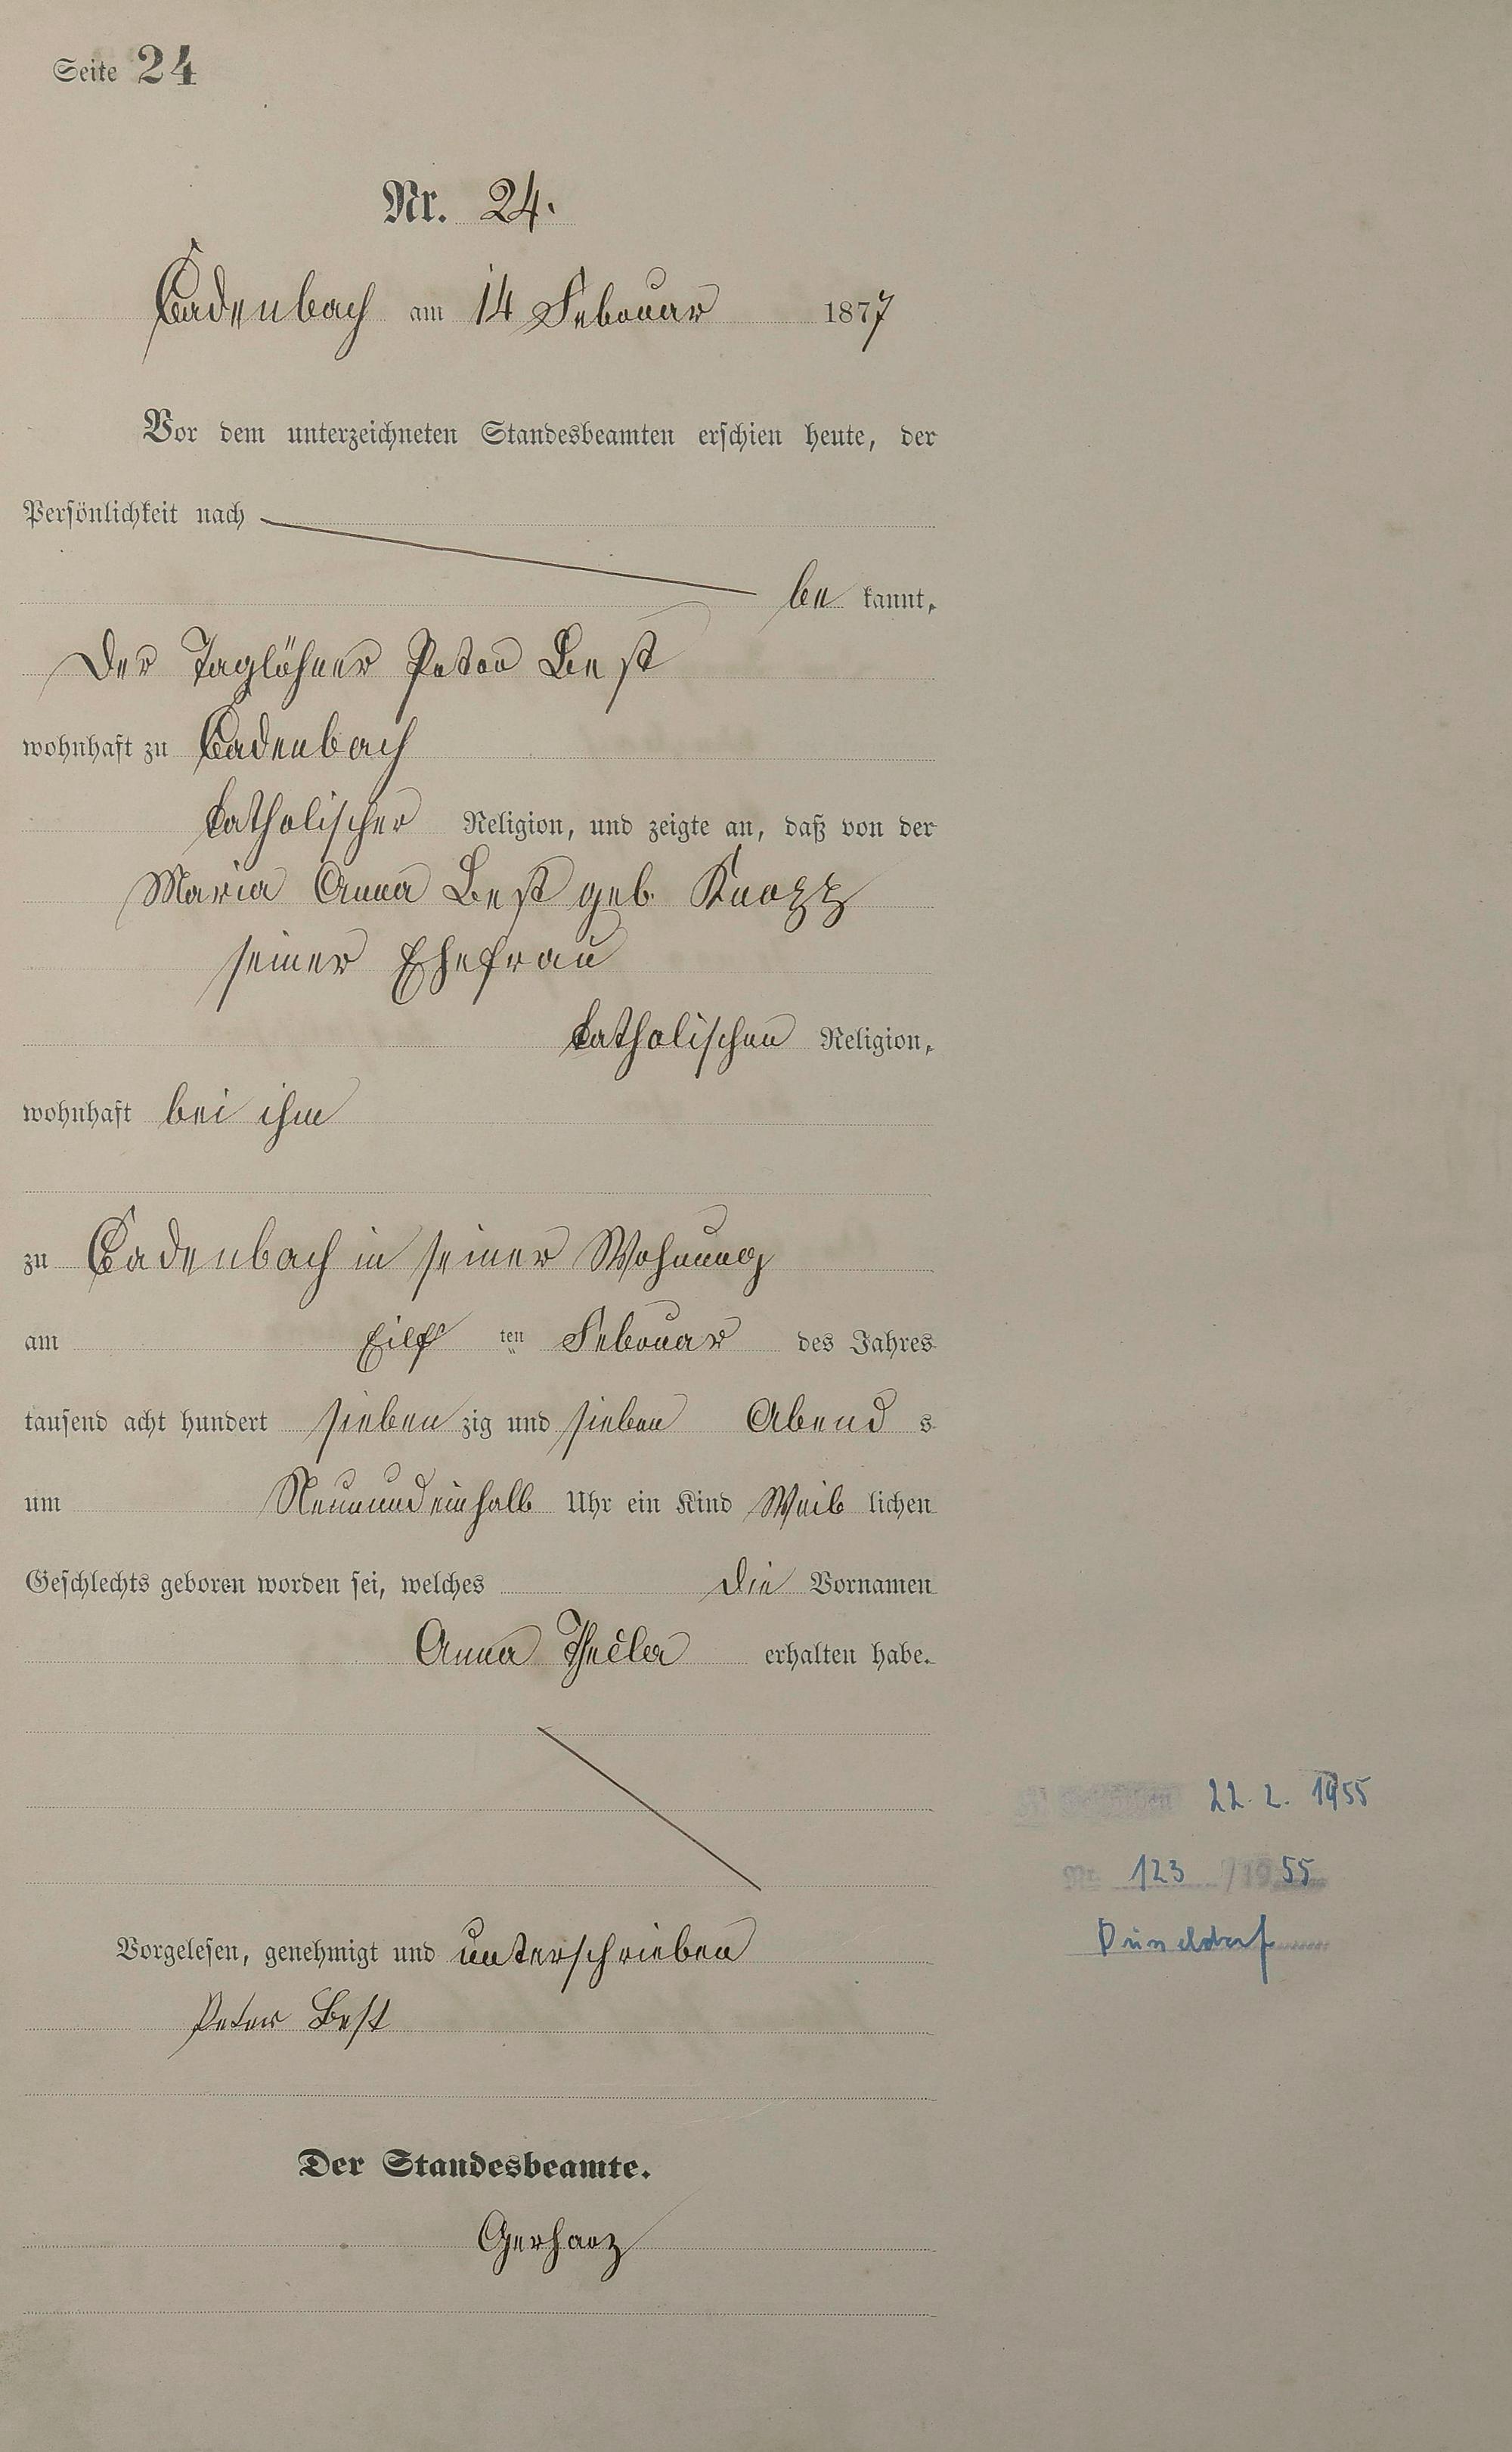 Seite 24
Nr. 24.
Cadenbach am 14 Februar 1877
Vor dem unterzeichneten Standesbeamten erschien heute, der
Persönlichkeit nach
be kannt,
Der Taglöhner Peter Best
wohnhaft zu Cadenbach
katholischer Religion, und zeigte an, daß von der
Maria Anna Best geb. Knopp
seiner Ehefrau
katholischen Religion,
wohnhaft bei ihm
zu Cadenbach in seiner Wohnung
am Eilf ten Februar des Jahres
tausend acht hundert sieben zig und sieben Abend s
um Neunundeinhalb Uhr ein Kind Weib lichen
Geschlechts geboren worden sei, welches die Vornamen
Anna Thecla erhalten habe.
22. 2. 1955
Nr. 123 /1955
Düsseldorf
Vorgelesen, genehmigt und unterschrieben
Peter Best
Der Standesbeamte.
Gerharz